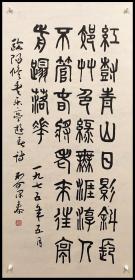 紅樹青山日欲斜長
郊艸色綠無涯游人
不管春將老來往亭
前蹋落花
一九七五年五月
歐陽修豐樂亭遊春詩